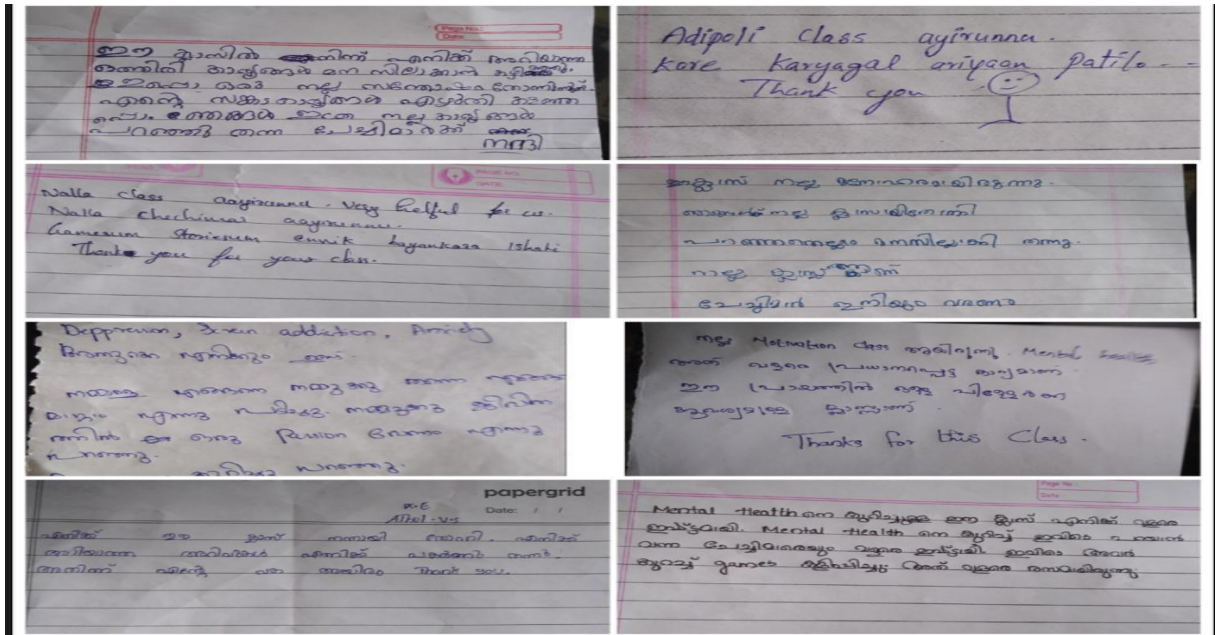 Page No.:
Date:
ഈ ക്ലാസിൽ നിന്ന് എനിക്ക് അറിയാത്ത
ഒത്തിരി കാര്യങ്ങൾ മനസിലാക്കാൻ
ഒരു നല്ല സന്തോഷം തോന്നിയത്.
എന്റെ
നല്ല കാര്യങ്ങൾ
പറഞ്ഞു തന്ന ചേച്ചിമാർക്ക്
നന്ദി
Adipoli Class ayirunnu.
Kore Karyagal ariyaan Patilo - -
Thank you
PAGE NO.
DATE:
Nalla class aayirunnu. Very helpful for us.
Nalla chechimar aayirunnu.
Gamesum Storiesum ennik bayankara Ishati
Thank you for your class.
ക്ലാസ് നല്ല മനോഹരമായിരുന്നു.
ഞങ്ങൾക്ക് നല്ല ക്ലാസായിതോന്നി
പറഞ്ഞതെല്ലാം മനസിലാക്കി തന്നു.
നല്ല ക്ലാസ്സാണ്
ചേച്ചിമാർ ഇനിയും വരണം
Deppression, Screen addiction, Anxiety
എന്നു പഠിച്ചു. നമ്മുക്കു ജീവിത
ത്തിൽ ഒരു Passion വേണം എന്നു
പറഞ്ഞു.
പറഞ്ഞു.
നല്ല Motivation Class ആയിരുന്നു. Mental
അത് വളരെ പ്രധാനപ്പെട്ട കാര്യമാണ്.
ഈ പ്രായത്തിൽ
ആവശ്യമുള്ള ക്ലാസ്സാണ്.
Thanks for this Class.
papergrid
Date: / /
എനിക്ക് ഈ ക്ലാസ് നന്നായി തോന്നി. എനിക്ക്
അറിയാത്ത അറിവുകൾ എനിക്ക് പകർന്നു തന്നു.
അതിന് എന്റെ ഒരു ആയിരം Thank you.
Page No.:
Date:
Mental Health നെ കുറിച്ചുള്ള ഈ ക്ലാസ് എനിക്ക് വളരെ
ഇഷ്ടമായി. Mental Health നെ കുറിച്ച് ഇവിടെ പറയാൻ
വന്ന ചേച്ചിമാരെയും വളരെ ഇഷ്ടമായി ഇവിടെ അവർ
കുറച്ച് games കളിപ്പിച്ചു അത് വളരെ രസമായിരുന്നു